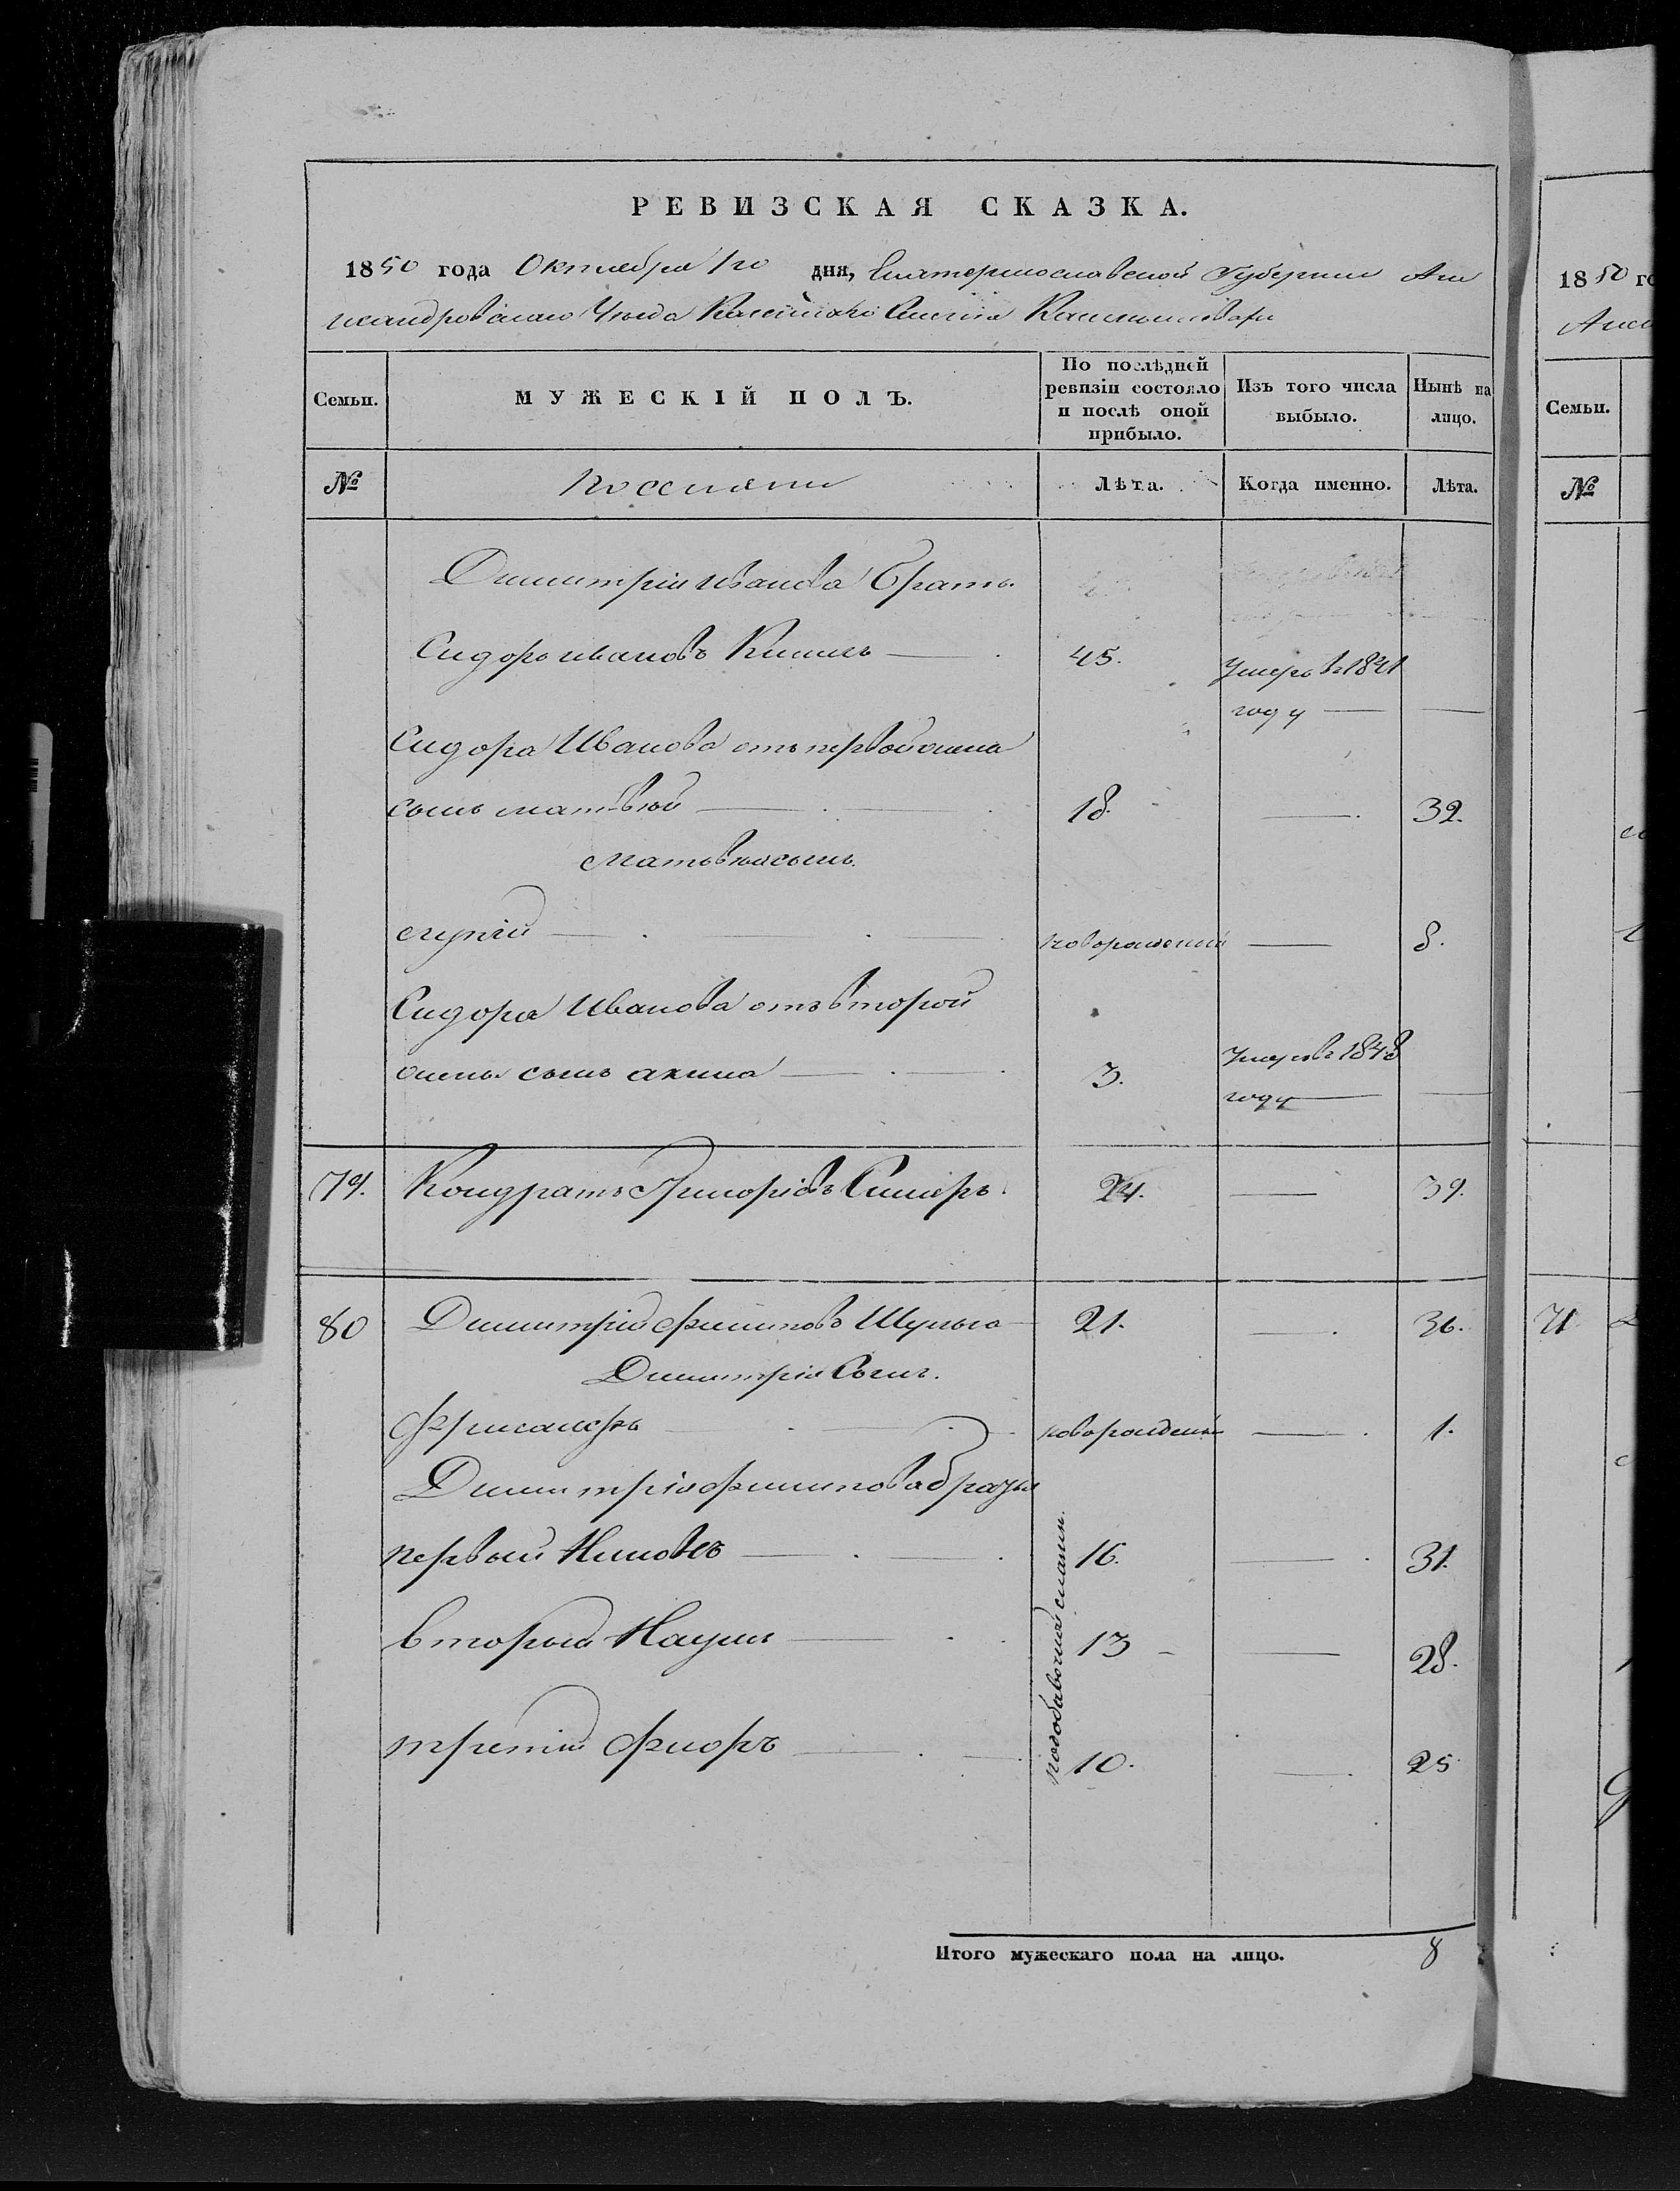 РЕВИЗСКАЯ СКАЗКА.
1850 года Октября 1го дня, Екатеринославской Губернии Але
ксандровскаго Уезда Казенного Селения
Семьи.
МУЖЕСКІЙ ПОЛЪ.
По послѣдней ревизіи состояло и послѣ оной прибыло.
Изъ того числа выбыло.
Нынѣ на лицо.
№
поселяни
Лѣта.
Когда именно.
Лѣта.
Димитрія иванова Братъ
Сидоръ ивановъ 45. Умеръ въ 1841
году
Сидора Иванова отъ первой жены
сынъ матвѣй 18. 32.
Матвѣя сынъ
новорожденый 8.
Сидора Иванова отъ второй
жены сынъ акима 3. Умеръ въ 1848
году
79. Кондратъ Григоріевъ 24. 39.
80 Димитрій Филиповъ Шульга 21. 36.
Димитрія Сынъ
новорожденый 1.
Димитрія филипова братья
первый 16. 31.
второй Наумъ 13 28.
третій Флоръ 10. 25
Итого мужескаго пола на лицо. 8
1850 го
Алек
Семьи.
№